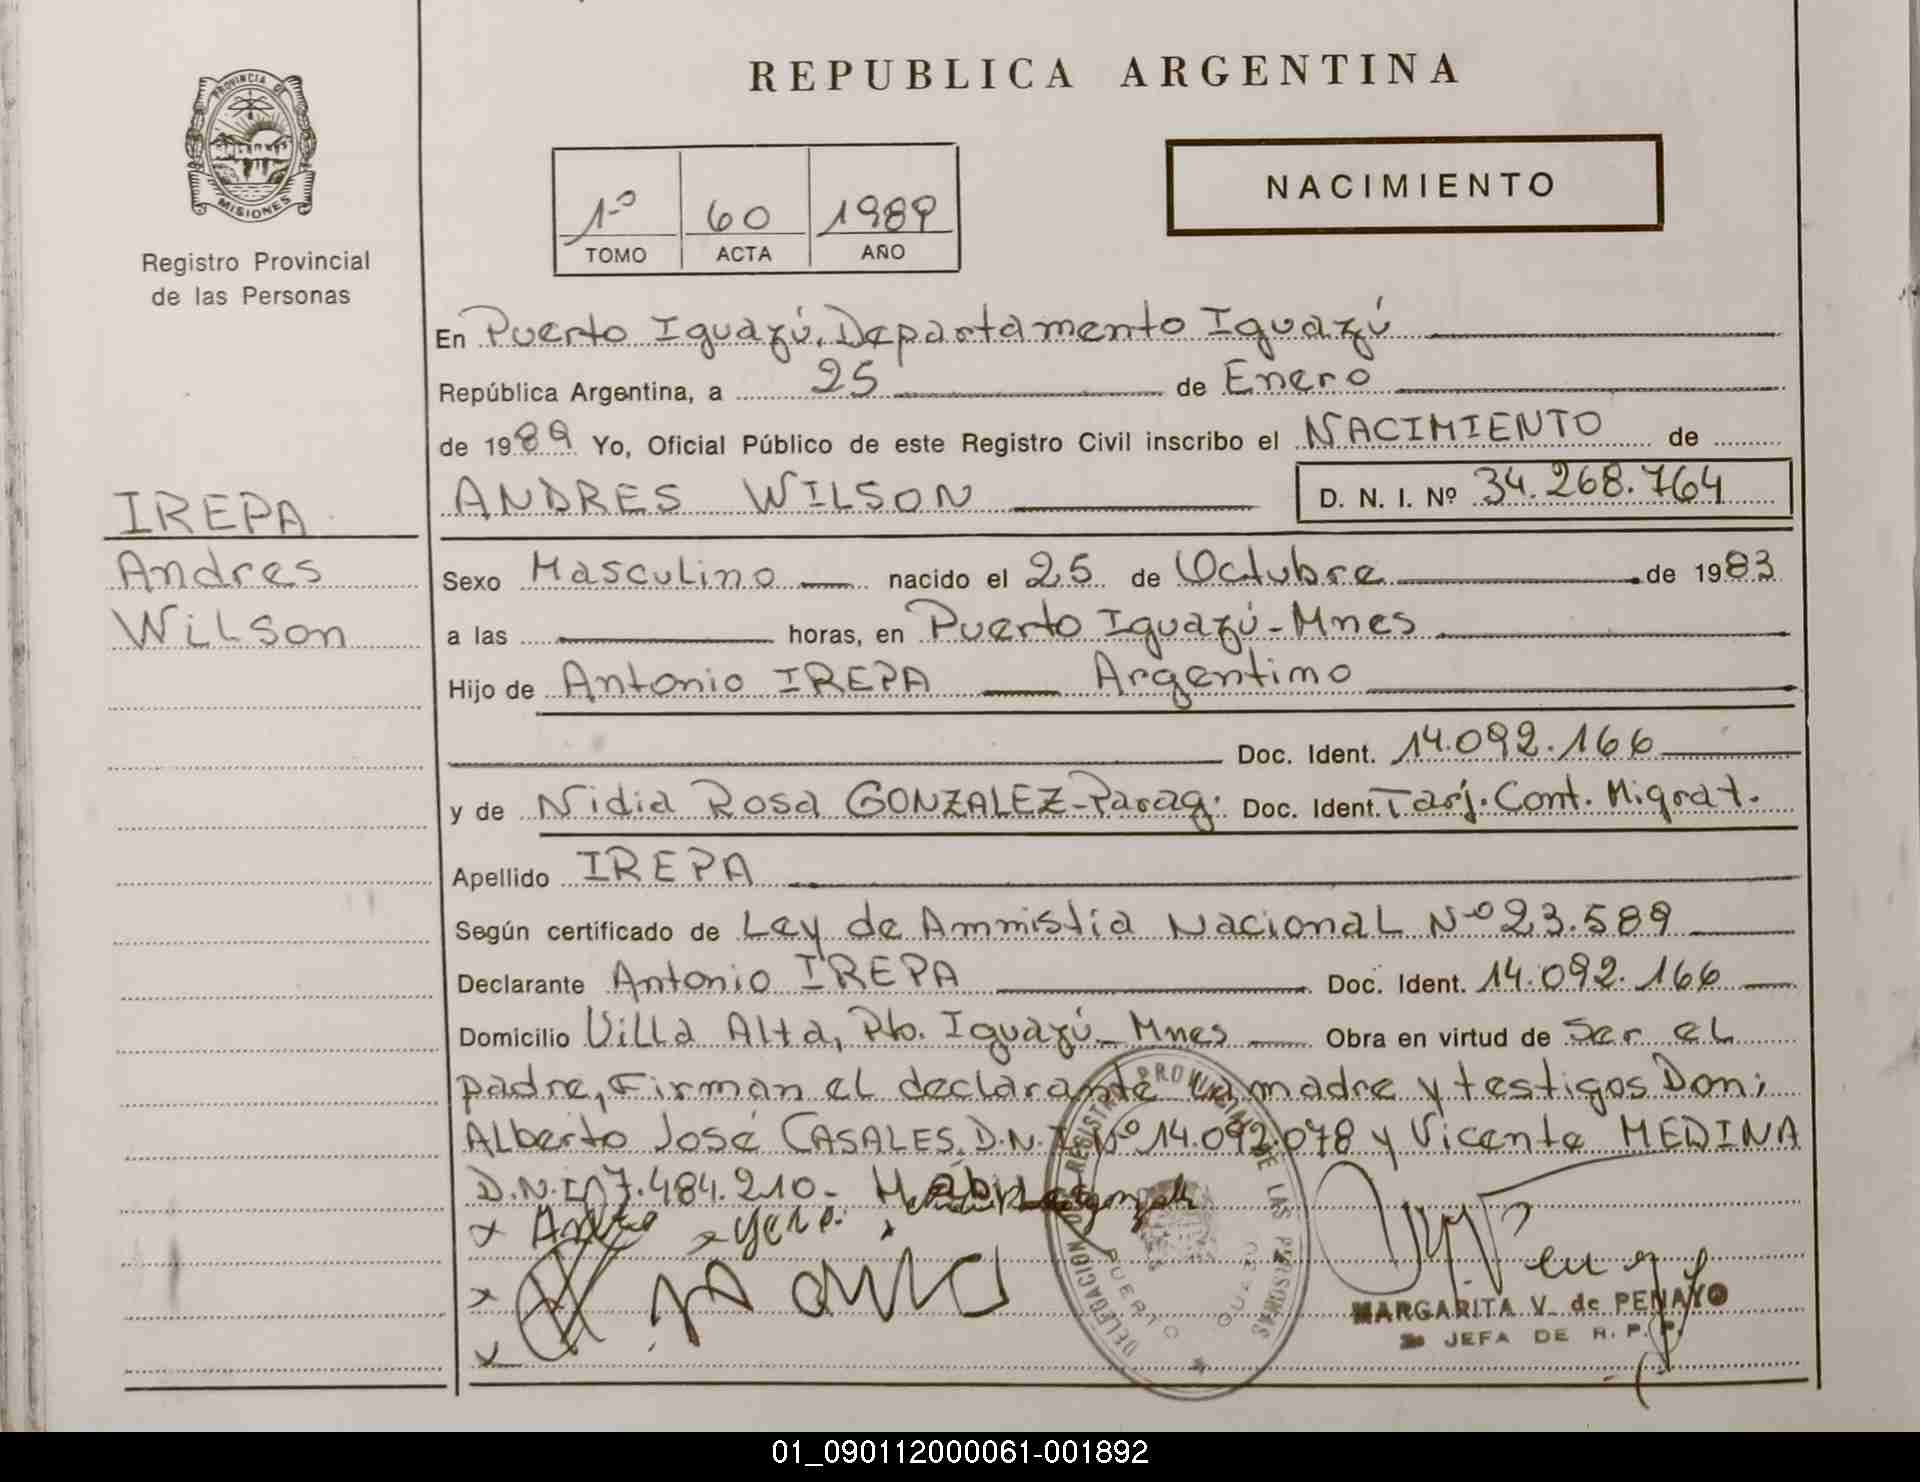 REPUBLICA ARGENTINA
PROVINCIA DE
MISIONES
Registro Provincial
de las Personas
1º 60 1989
TOMO ACTA AÑO
NACIMIENTO
En Puerto Iguazú, Departamento Iguazú
República Argentina, a 25 de Enero
de 1989 Yo, Oficial Público de este Registro Civil inscribo el NACIMIENTO de
ANDRES WILSON D. N. I. Nº 34.268.764
IREPA
Andres
Wilson
Sexo Masculino nacido el 25 de Octubre de 1983
a las horas, en Puerto Iguazú - Mnes
Hijo de Antonio IREPA Argentino
Doc. Ident. 14.092.166
y de Nidia Rosa GONZALEZ-Parag. Doc. Ident. Tarj. Cont. Migrat.
Apellido IREPA
Según certificado de Ley de Ammistia Nacional Nº 23.589
Declarante Antonio IREPA Doc. Ident. 14.092.166
Domicilio Villa Alta, Pto. Iguazú - Mnes Obra en virtud de Ser el
padre, Firman el declarante la madre y testigos Don;
Alberto José CASALES D.N.I. Nº 14.092.078 y Vicente MEDINA
D.N.I. 7.484.210-
DELEGACION REGISTRO PROVINCIAL DE LAS PERSONAS
PUERTO IGUAZU
MARGARITA V. de PENAYO
JEFA DE R. P. P.
01_090112000061-001892